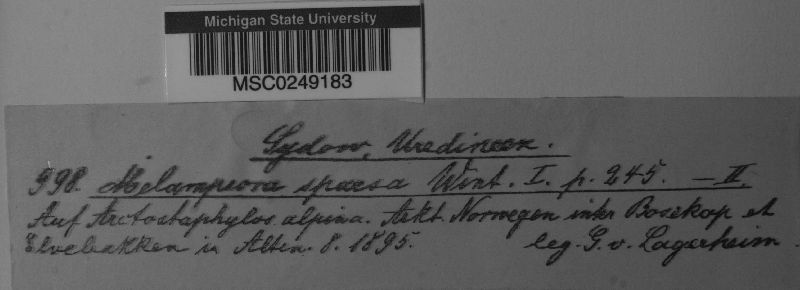 Michigan State University
MSC0249183
Sydow, Uredineen.
998. Melampsora sparsa Wint. I. p. 245. — II.
Auf Arctostaphylos alpina. Arkt. Norwegen inter Bosekop et
Elvebakken in Alten. 8. 1895. leg. G. v. Lagerheim.